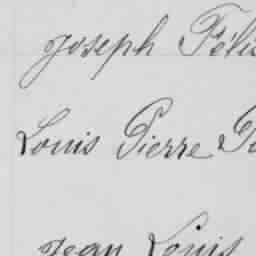 Joseph Féli
Louis Pierre
Jean Louis